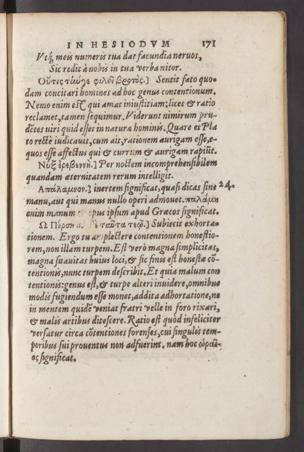 IN HESIODVM 171
Vtq́; meis numeris tua dat facundia neruos,
Sic redit à nobis in tua verba nitor.
Οὔτις τήνγε φιλεῖ βροτός.) Sentit fato quo-
dam concitari homines ad hoc genus contentionum.
Nemo enim est qui amat iniustitiam; licet & ratio
reclamet, tamen sequimur. Viderunt nimirum pru-
dētes uiri quid esset in natura hominis. Quare et Pla
to rectè iudicauit, cum ait, rationem aurigam esse, e-
quos esse affectus qui & currum & aurigam rapiūt.
Νὺξ ἐρεβεννή.) Per noctem incomprehensibilem
quandam aeternitatem rerum intelligit.
Ἀπάλαμνον.) inertem significat, quasi dicas sine 24.
manu, aut qui manus nullo operi admouet. παλάμη
enim manum & opus ipsum apud Græcos significat.
Ὦ Πέρση ταῦτα τεῷ.) Subiecit exhorta-
tionem. Ergo suadet amplectere contentionem honestio-
rem, non illam turpem. Est verò magna simplicitas,
magna suauitas huius loci, & sic finis est honestæ cō-
tentionis, nunc turpem describit. Et quia malum con
tentionis genus est, & turpe alteri inuidere, omnibus
modis fugiendum esse monet, addita adhortatione, ne
in mentem quidē veniat fratri velle in foro rixari,
& malis artibus ditescere. Ratio est quòd infeliciter
versatur circa cōtentiones forenses, cui singulis tem-
poribus sui prouentus non adfuerint. nam hoc ὡραῖ-
ος significat.